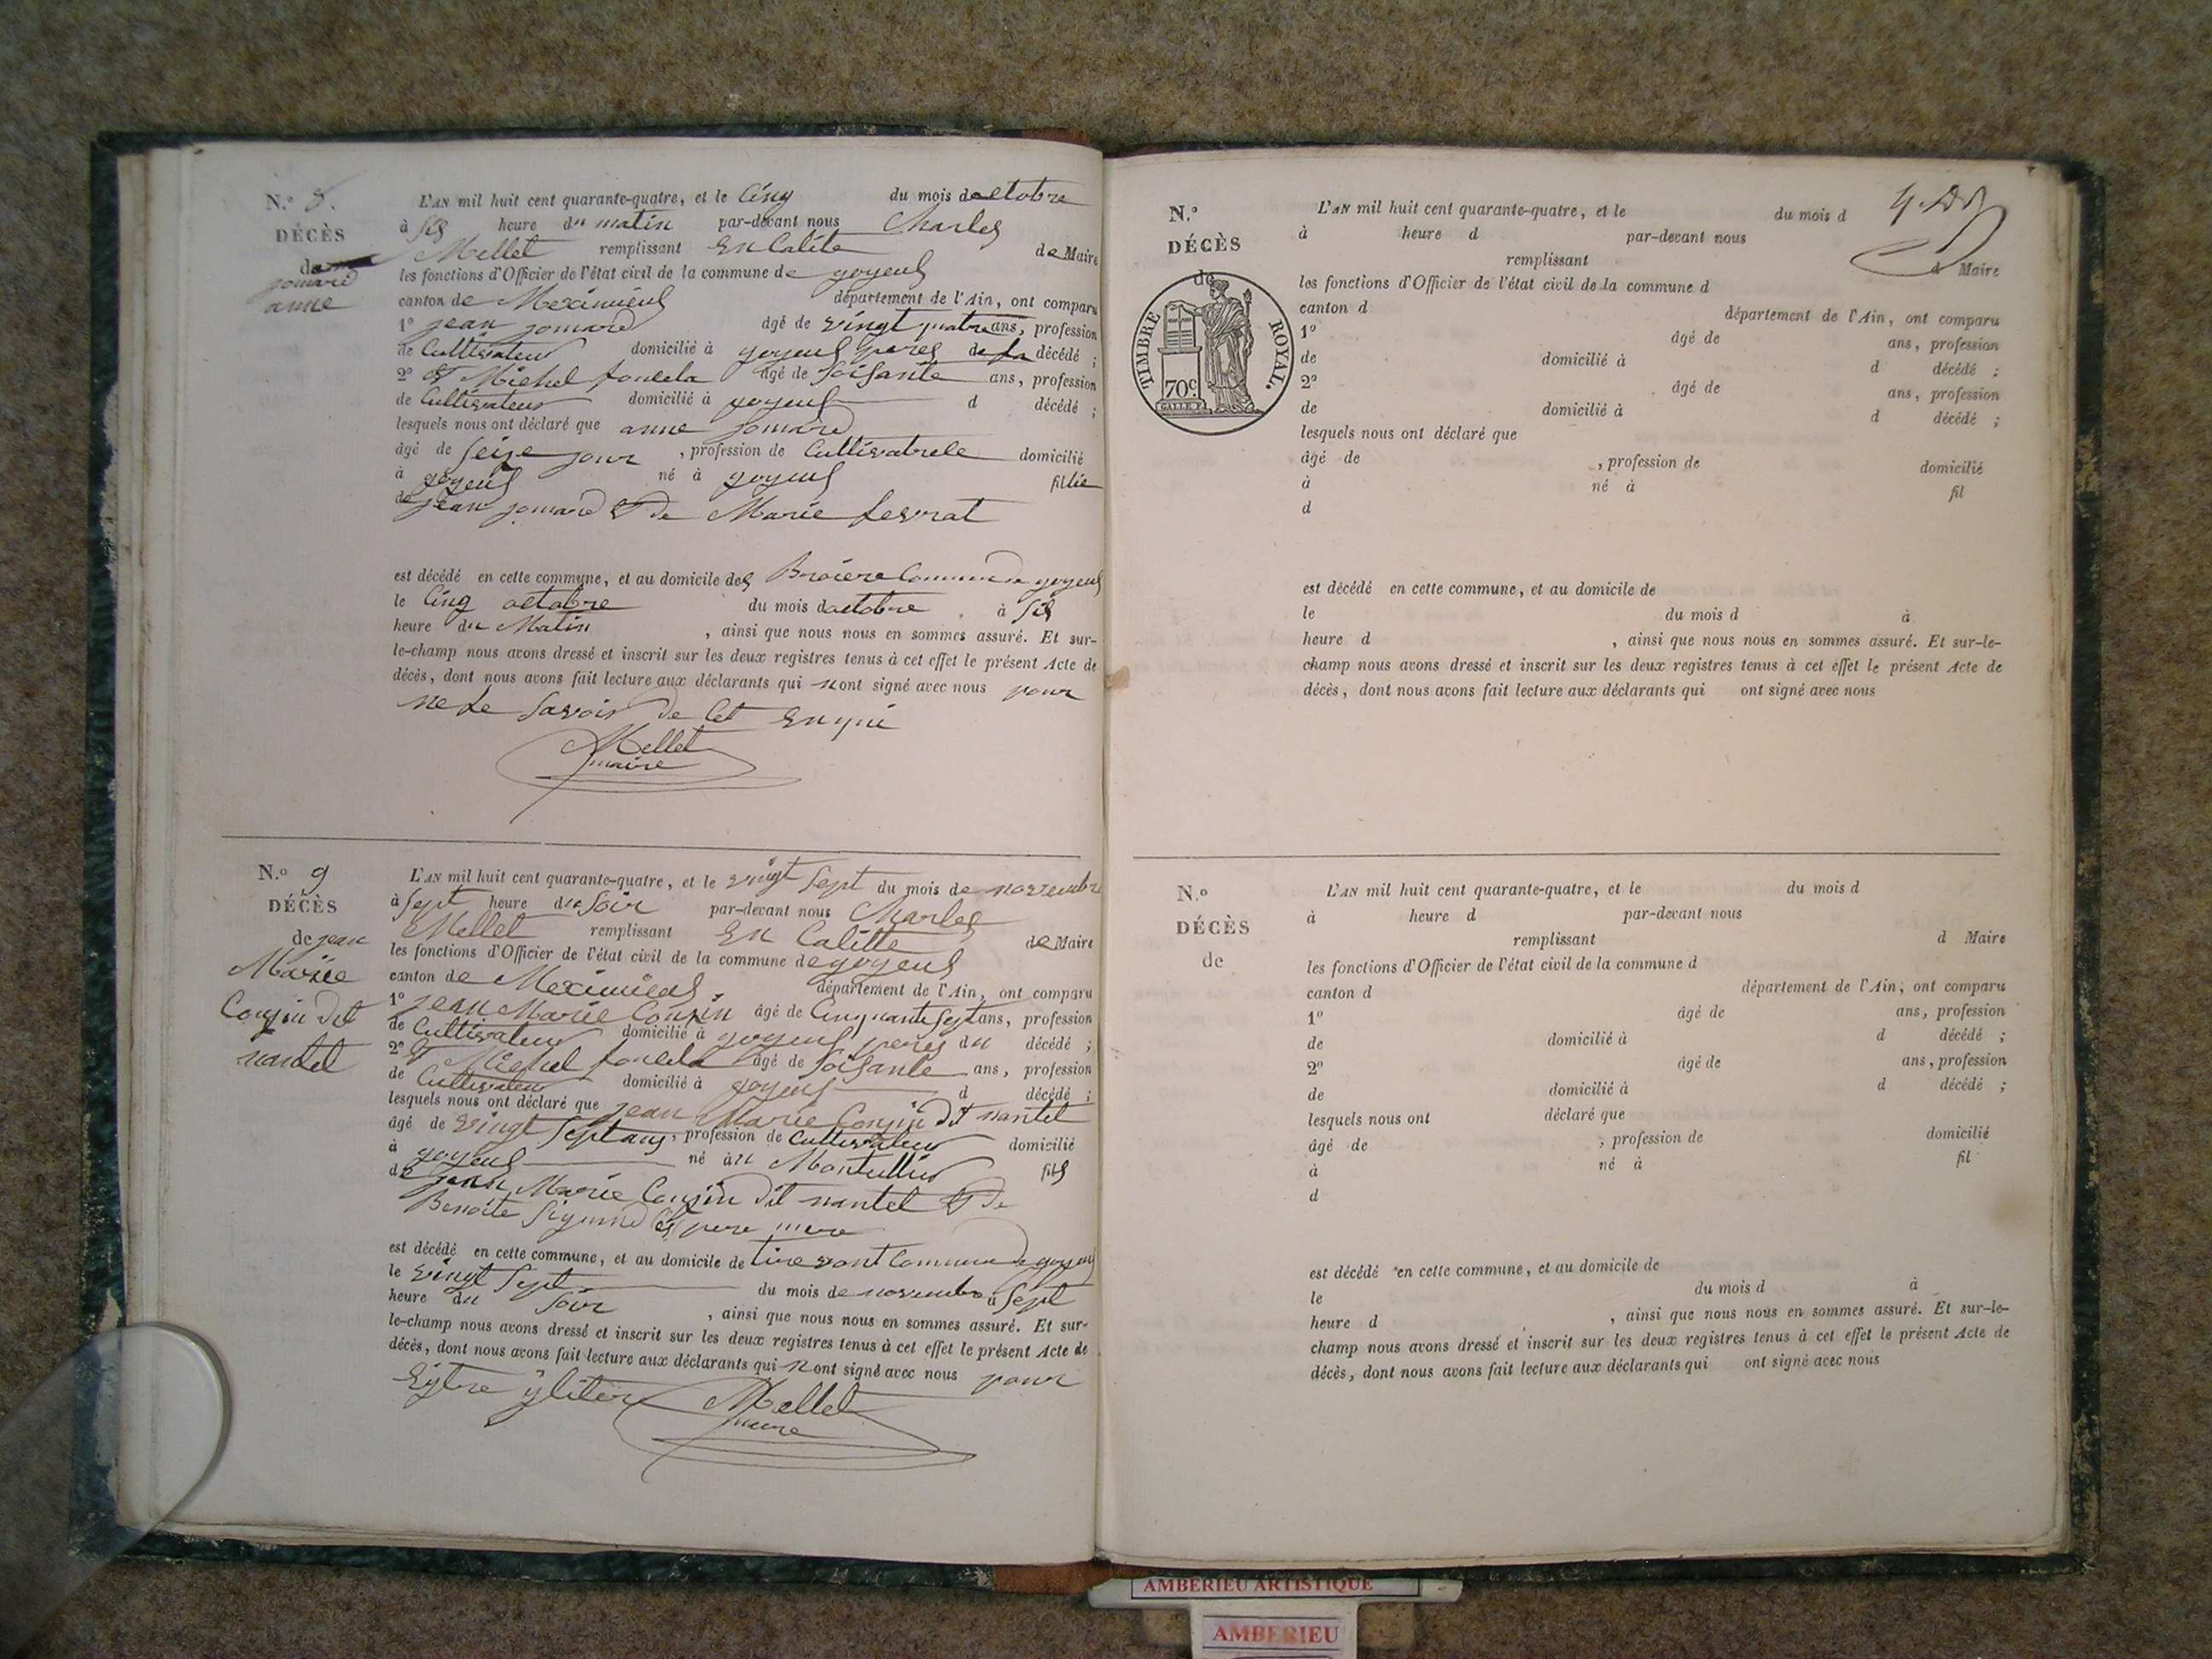 N.º 8.
DÉCÈS
de
jomard
anne
L'AN mil huit cent quarante-quatre, et le Cinq du mois doctobre
à Sis heure du matin par-devant nous Charles
Mellet remplissant En Calite de Maire
les fonctions d'Officier de l'état civil de la commune de joyeus
canton de Meximieus département de l'Ain, ont comparu
1º jean jomard âgé de vingt quatre ans, profession
de Cultivateur domicilié à joyeus peres de la décédé ;
2º et Michel âgé de Soisante ans, profession
de Cultivateur domicilié à joyeus d décédé ;
lesquels nous ont déclaré que anne jomard
âgé de Seize jour , profession de Cultivatrele domicilié
à joyeus né à joyeus fillie
de jean jomard et de Marie Levrat
est décédé en cette commune, et au domicile des Commune de joyeus
le Cinq octobre du mois doctobre à Sis
heure du Matin , ainsi que nous nous en sommes assuré. Et sur-
le-champ nous avons dressé et inscrit sur les deux registres tenus à cet effet le présent Acte de
décès, dont nous avons fait lecture aux déclarants qui nont signé avec nous pour
ne Le Savoir de Cet Enqui
Mellet
maire
N.º 9
DÉCÈS
de jean
Mariee
Conjin dit
nantel
L'AN mil huit cent quarante-quatre, et le vingt Sept du mois de novembre
à Sept heure du Soir par-devant nous Charles
Mellet remplissant En Calitte de Maire
les fonctions d'Officier de l'état civil de la commune de joyeus
canton de Meximieus département de l'Ain, ont comparu
1º jean Marie Conjin âgé de Cinquante Sept ans, profession
de Cultivateur domicilié à joyeus peres du décédé ;
2º et Michel âgé de Soisante ans, profession
de Cultivateur domicilié à joyeus d décédé ;
lesquels nous ont déclaré que jean Marie Conjin dit nantel
âgé de vingt Sept ans, profession de Cultivateur domicilié
à joyeus né àu Montellier fils
de jean Marie Conjin dit nantel et de
Benoite pere mere
est décédé en cette commune, et au domicile de tire vont Commune de joyeus
le vingt Sept du mois de novembre à Sept
heure du Soir , ainsi que nous nous en sommes assuré. Et sur-
le-champ nous avons dressé et inscrit sur les deux registres tenus à cet effet le présent Acte de
décès, dont nous avons fait lecture aux déclarants qui nont signé avec nous pour
Eytre yliterè Mellet
maire
N.º
DÉCÈS
de
TIMBRE ROYAL.
70c.
L'AN mil huit cent quarante-quatre, et le du mois d
à heure d par-devant nous
remplissant d Maire
les fonctions d'Officier de l'état civil de la commune d
canton d département de l'Ain, ont comparu
1º âgé de ans, profession
de domicilié à d décédé ;
2º âgé de ans, profession
de domicilié à d décédé ;
lesquels nous ont déclaré que
âgé de , profession de domicilié
à né à fil
d
est décédé en cette commune, et au domicile de
le du mois d à
heure d , ainsi que nous nous en sommes assuré. Et sur-le-
champ nous avons dressé et inscrit sur les deux registres tenus à cet effet le présent Acte de
décès, dont nous avons fait lecture aux déclarants qui ont signé avec nous
N.º
DÉCÈS
de
L'AN mil huit cent quarante-quatre, et le du mois d
à heure d par-devant nous
remplissant d Maire
les fonctions d'Officier de l'état civil de la commune d
canton d département de l'Ain, ont comparu
1º âgé de ans, profession
de domicilié à d décédé ;
2º âgé de ans, profession
de domicilié à d décédé ;
lesquels nous ont déclaré que
âgé de , profession de domicilié
à né à fil
d
est décédé en cette commune, et au domicile de
le du mois d à
heure d , ainsi que nous nous en sommes assuré. Et sur-le-
champ nous avons dressé et inscrit sur les deux registres tenus à cet effet le présent Acte de
décès, dont nous avons fait lecture aux déclarants qui ont signé avec nous
AMBERIEU ARTISTIQUE
AMBERIEU